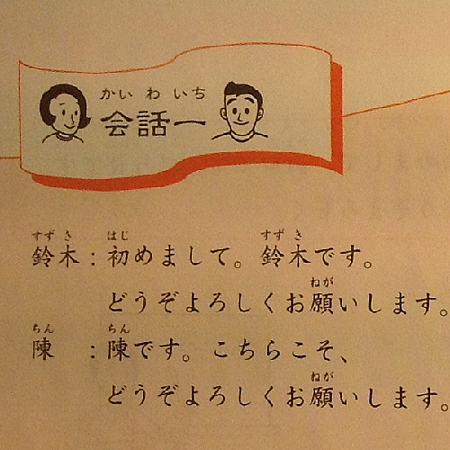 かいわいち
会話一
すずき はじ すずき
鈴木：初めまして。鈴木です。
ねが
どうぞよろしくお願いします。
ちん ちん
陳　：陳です。こちらこそ、
ねが
どうぞよろしくお願いします。